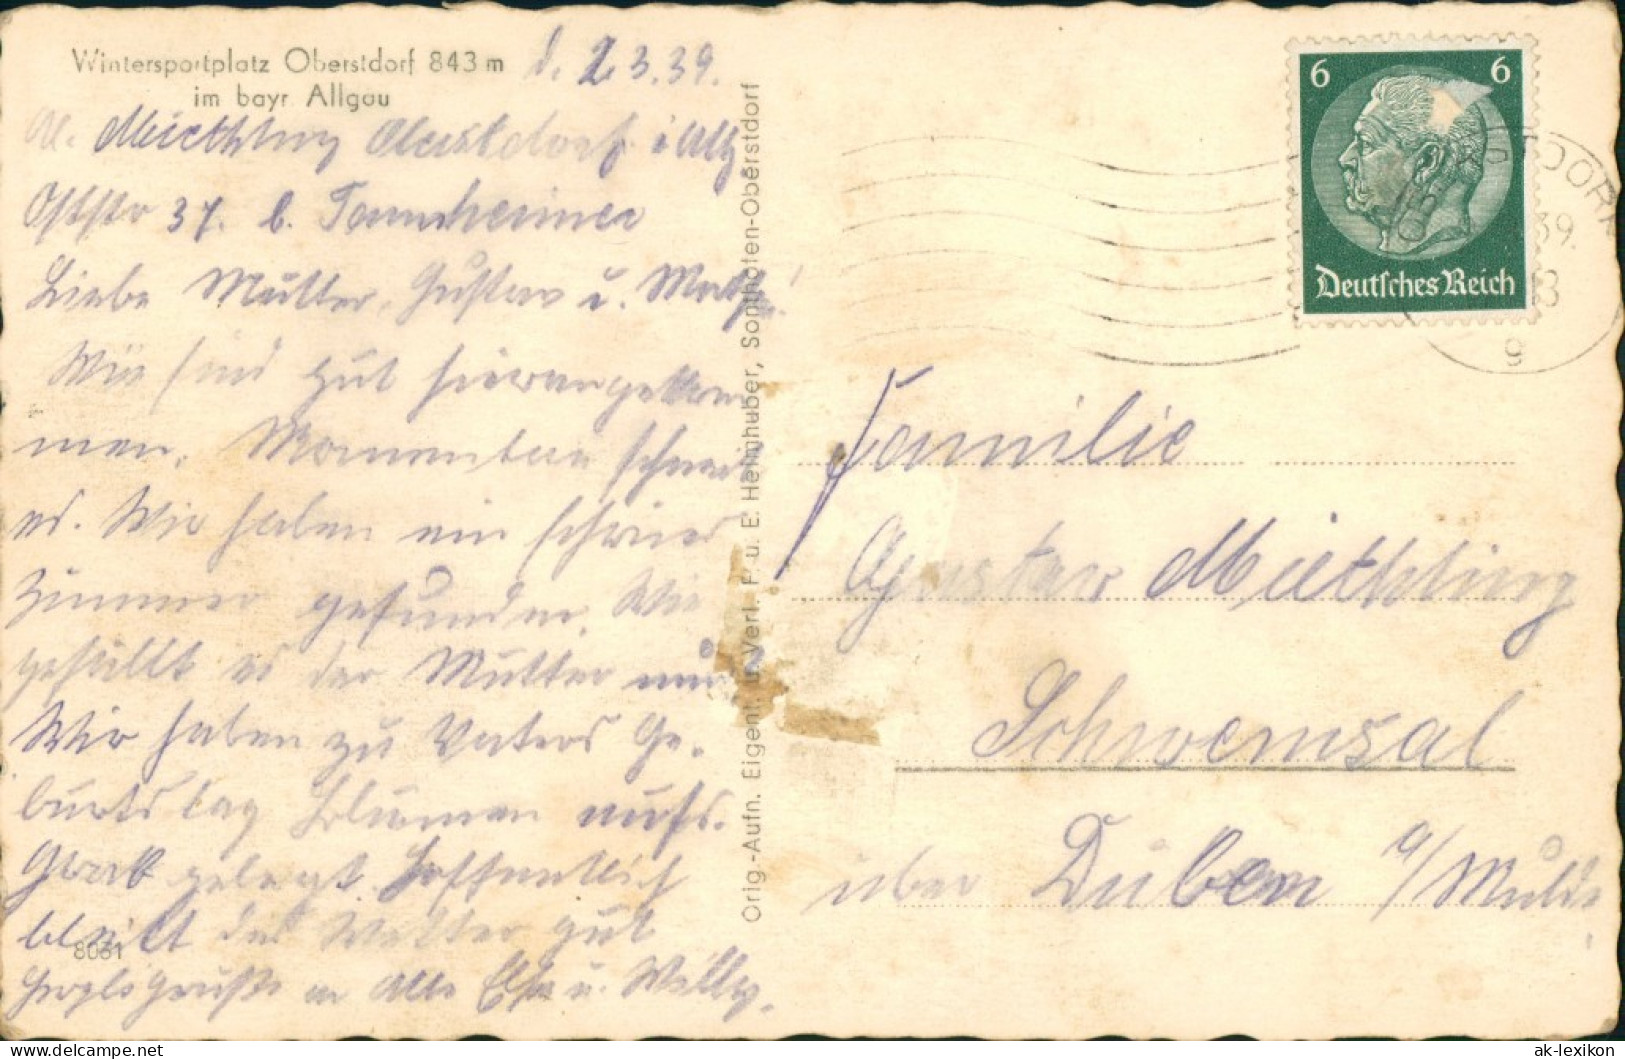 Wintersportplatz Oberstdorf 843 m
im bayr Allgäu
d. 2.3.39.
Miethling Oberstdorf i. Allg
Oststr 37. b. Tannheimer
Liebe Mutter, Gustav u.
Wir sind gut hier angekom
men. Momentan schneit
es. Wir haben ein schönes
Zimmer gefunden. Wie
gefällt es der Mutter nun
Wir haben zu Vaters Ge-
burtstag Blumen aufs.
Grab gelegt. Hoffentlich
bleibt das Wetter gut
Herzl. Grüße an Alle Else u. Willy.
8031
Orig.-Aufn. Eigent. u. Verl. F. u. E. Heimhuber, Sonthofen-Oberstdorf
6 6
Deutsches Reich
39.
13
g
Familie
Gustav Miethling
Schwemsal
über Düben a/Mulde
ak-lexikon.de